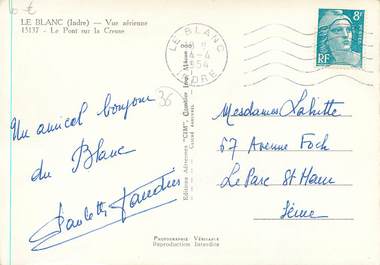 LE BLANC (Indre) — Vue aérienne
15137 - Le Pont sur la Creuse
LE BLANC
4-4
1954
INDRE
8F
POSTES
RF
36
Un amical bonjour
du Blanc
Paulette
Mesdames Lahitte
67 Avenue Foch
Le Parc St Maur
Seine
Editions Aériennes "CIM", Combier Imp. Mâcon
PHOTOGRAPHIE VÉRITABLE
Reproduction Interdite